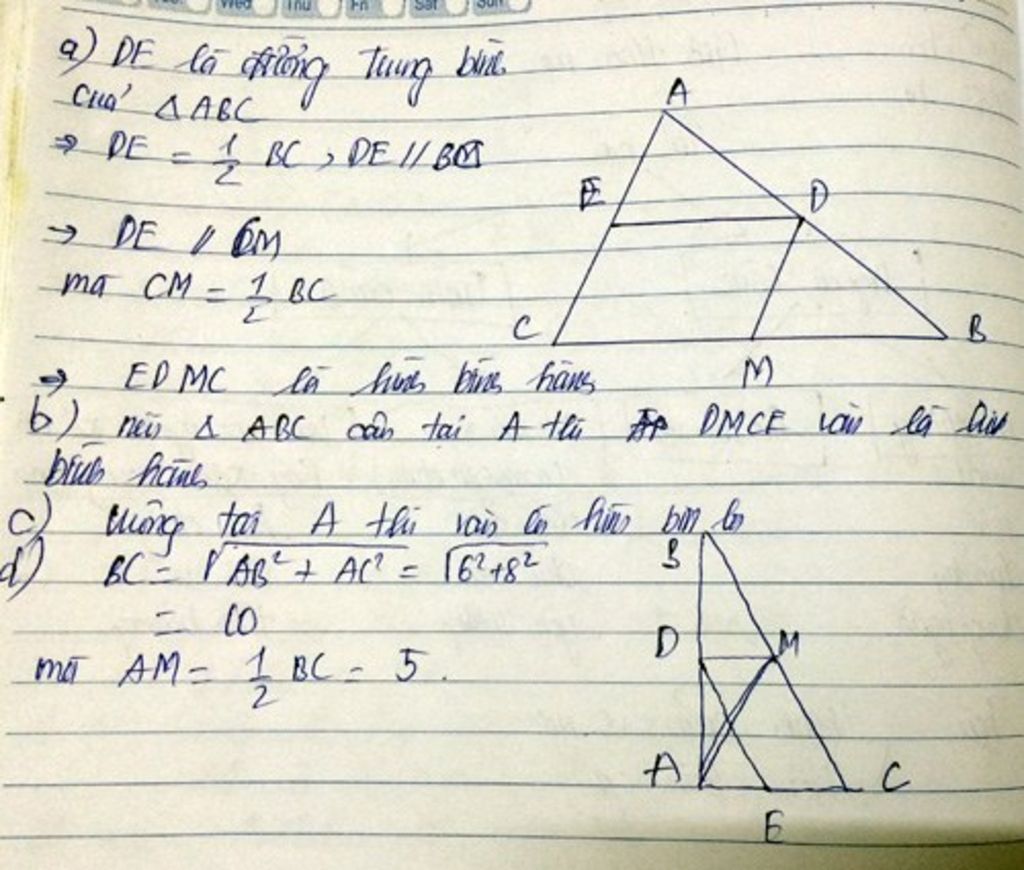 Wed Thu Fri Sat Sun
a) DE là đường trung bình
của △ABC
⇒ DE = 1/2 BC, DE // BM
→ DE // CM
mà CM = 1/2 BC
⇒ EDMC là hình bình hành
b) nếu △ ABC cân tại A thì DMCE vẫn là hình
bình hành
c) vuông tại A thì vẫn là hình bình
d) BC = √AB² + AC² = √6²+8²
= 10
mà AM = 1/2 BC = 5.
A
E D
C M B
B
D M
A E C